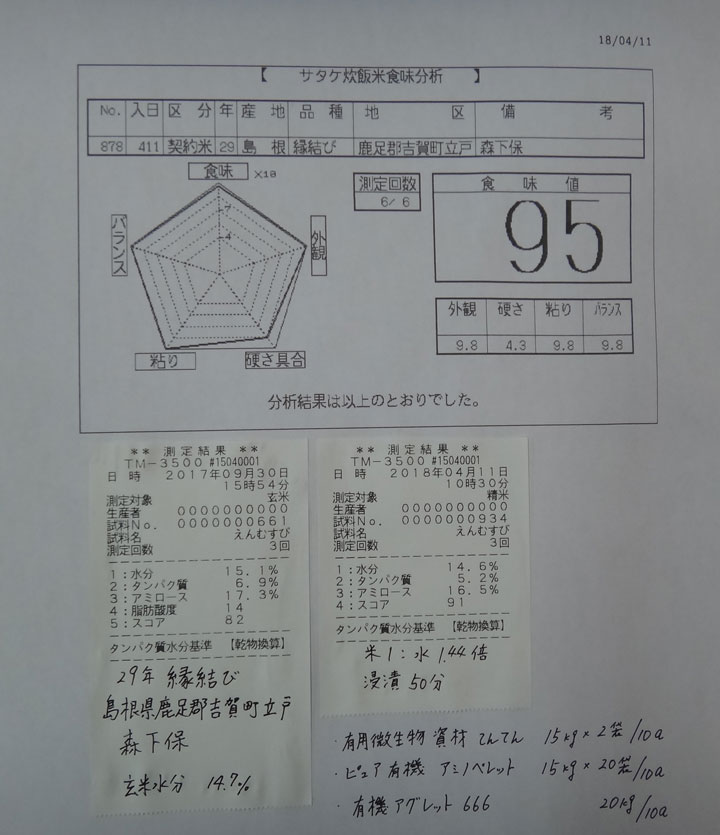 18/04/11
【 サタケ炊飯米食味分析 】
No. 入日 区分 年 産地 品種 地区 備考
878 411 契約米 29 島根 縁結び 鹿足郡吉賀町立戸 森下保
食味 ×10
7
4
バランス
外観
粘り
硬さ具合
測定回数
6/ 6
食味値
95
外観 硬さ 粘り バランス
9.8 4.3 9.8 9.8
分析結果は以上のとおりでした。
** 測定結果 **
TM-3500 #15040001
日時 2017年09月30日
15時54分
測定対象 玄米
生産者 0000000000
試料No. 0000000661
試料名 えんむすび
測定回数 3回
1:水分 15.1%
2:タンパク質 6.9%
3:アミロース 17.3%
4:脂肪酸度 14
5:スコア 82
タンパク質水分基準 【乾物換算】
29年 縁結び
島根県鹿足郡吉賀町立戸
森下保
玄米水分 14.7%
** 測定結果 **
TM-3500 #15040001
日時 2018年04月11日
10時30分
測定対象 精米
生産者 0000000000
試料No. 0000000934
試料名 えんむすび
測定回数 3回
1:水分 14.6%
2:タンパク質 5.2%
3:アミロース 16.5%
4:スコア 91
タンパク質水分基準 【乾物換算】
米1:水1.44倍
浸漬50分
・有用微生物資材 てんてん 15kg×2袋/10a
・ピュア有機 アミノペレット 15kg×20袋/10a
・有機アグレット666 20kg/10a